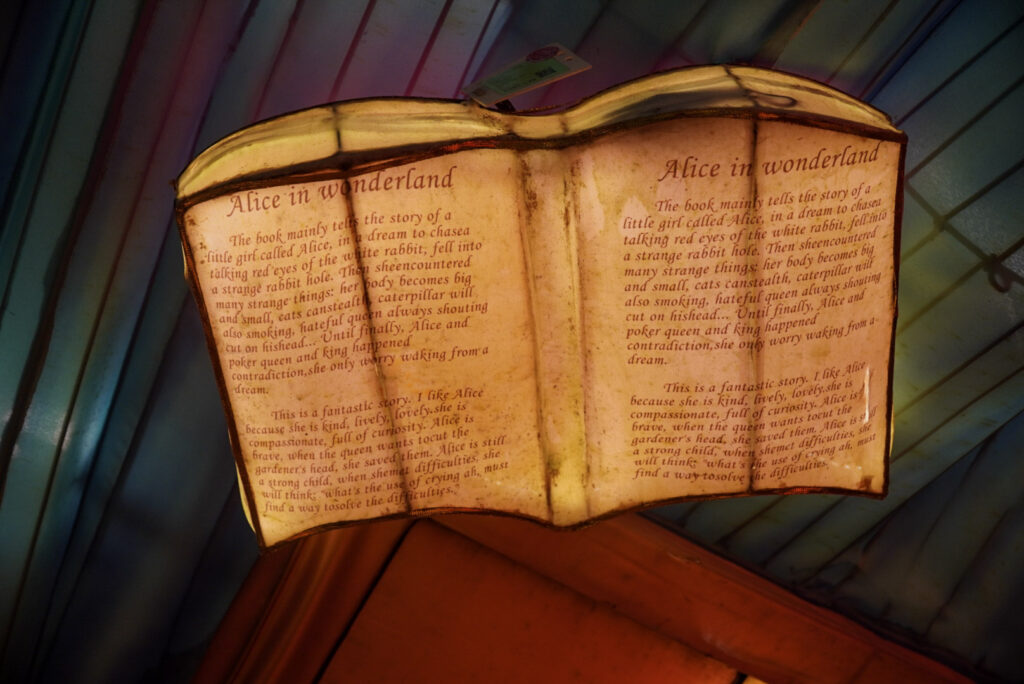 Alice in wonderland
The book mainly tells the story of a
little girl called Alice, in a dream to chasea
talking red eyes of the white rabbit, fell into
a strange rabbit hole. Then sheencountered
many strange things: her body becomes big
and small, eats canstealth, caterpillar will
also smoking, hateful queen always shouting
cut on hishead... Until finally, Alice and
poker queen and king happened
contradiction,she only worry waking from a
dream.
This is a fantastic story. I like Alice
because she is kind, lively, lovely.she is
compassionate, full of curiosity. Alice is
brave, when the queen wants tocut the
gardener's head, she saved them. Alice is still
a strong child, when shemet difficulties, she
will think: "what's the use of crying ah, must
find a way tosolve the difficulties."
Alice in wonderland
The book mainly tells the story of a
little girl called Alice, in a dream to chasea
talking red eyes of the white rabbit, fell into
a strange rabbit hole. Then sheencountered
many strange things: her body becomes big
and small, eats canstealth, caterpillar will
also smoking, hateful queen always shouting
cut on hishead... Until finally, Alice and
poker queen and king happened
contradiction,she only worry waking from a
dream.
This is a fantastic story. I like Alice
because she is kind, lively, lovely.she is
compassionate, full of curiosity. Alice is
brave, when the queen wants tocut the
gardener's head, she saved them. Alice is still
a strong child, when shemet difficulties, she
will think: "what's the use of crying ah, must
find a way tosolve the difficulties."